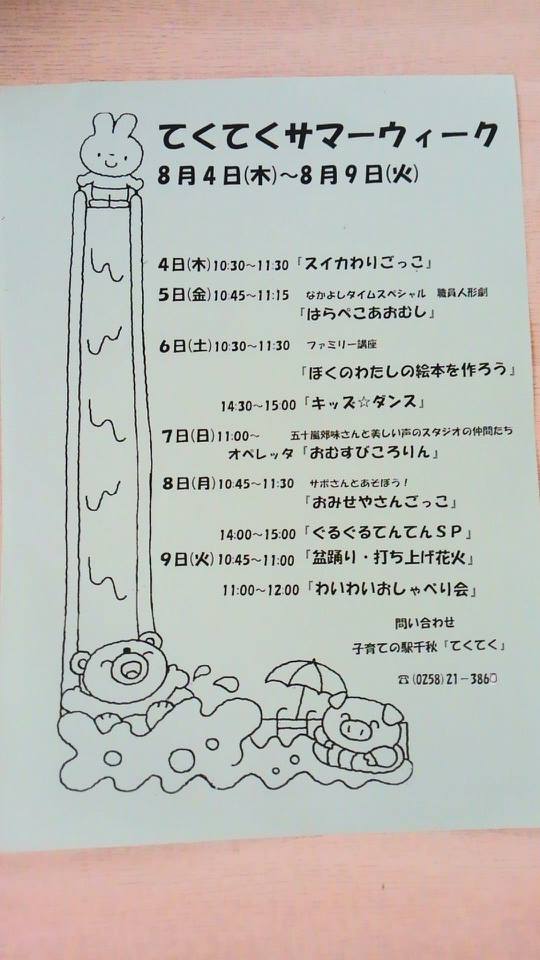 てくてくサマーウィーク
8月4日(木)～8月9日(火)
4日(木)10:30～11:30「スイカわりごっこ」
5日(金)10:45～11:15 なかよしタイムスペシャル 職員人形劇
「はらぺこあおむし」
6日(土)10:30～11:30 ファミリー講座
「ぼくのわたしの絵本を作ろう」
14:30～15:00「キッズ☆ダンス」
7日(日)11:00～ 五十嵐郊味さんと美しい声のスタジオの仲間たち
オペレッタ「おむすびころりん」
8日(月)10:45～11:30 サポさんとあそぼう!
「おみせやさんごっこ」
14:00～15:00「ぐるぐるてんてんSP」
9日(火)10:45～11:00「盆踊り・打ち上げ花火」
11:00～12:00「わいわいおしゃべり会」
問い合わせ
子育ての駅千秋「てくてく」
☎(0258)21-3860